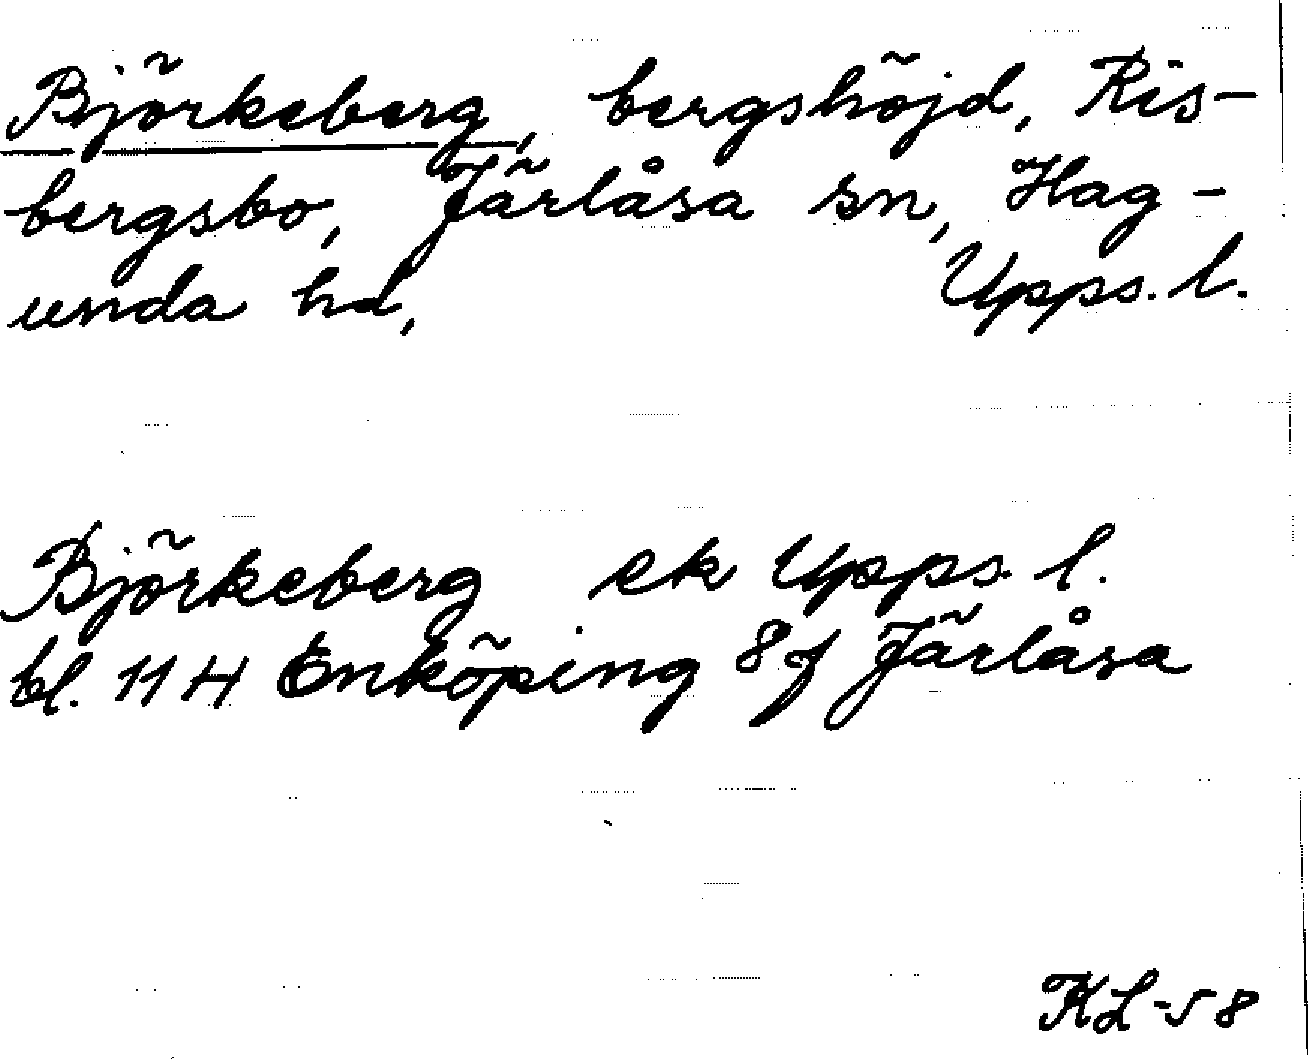 Björkeberg, bergshöjd, Ris-
bergsbo, Järlåsa sn, Hag-
unda hd, Upps. l.
Björkeberg ek Upps. l.
bl. 11 H Enköping 8 f Järlåsa
KL-58